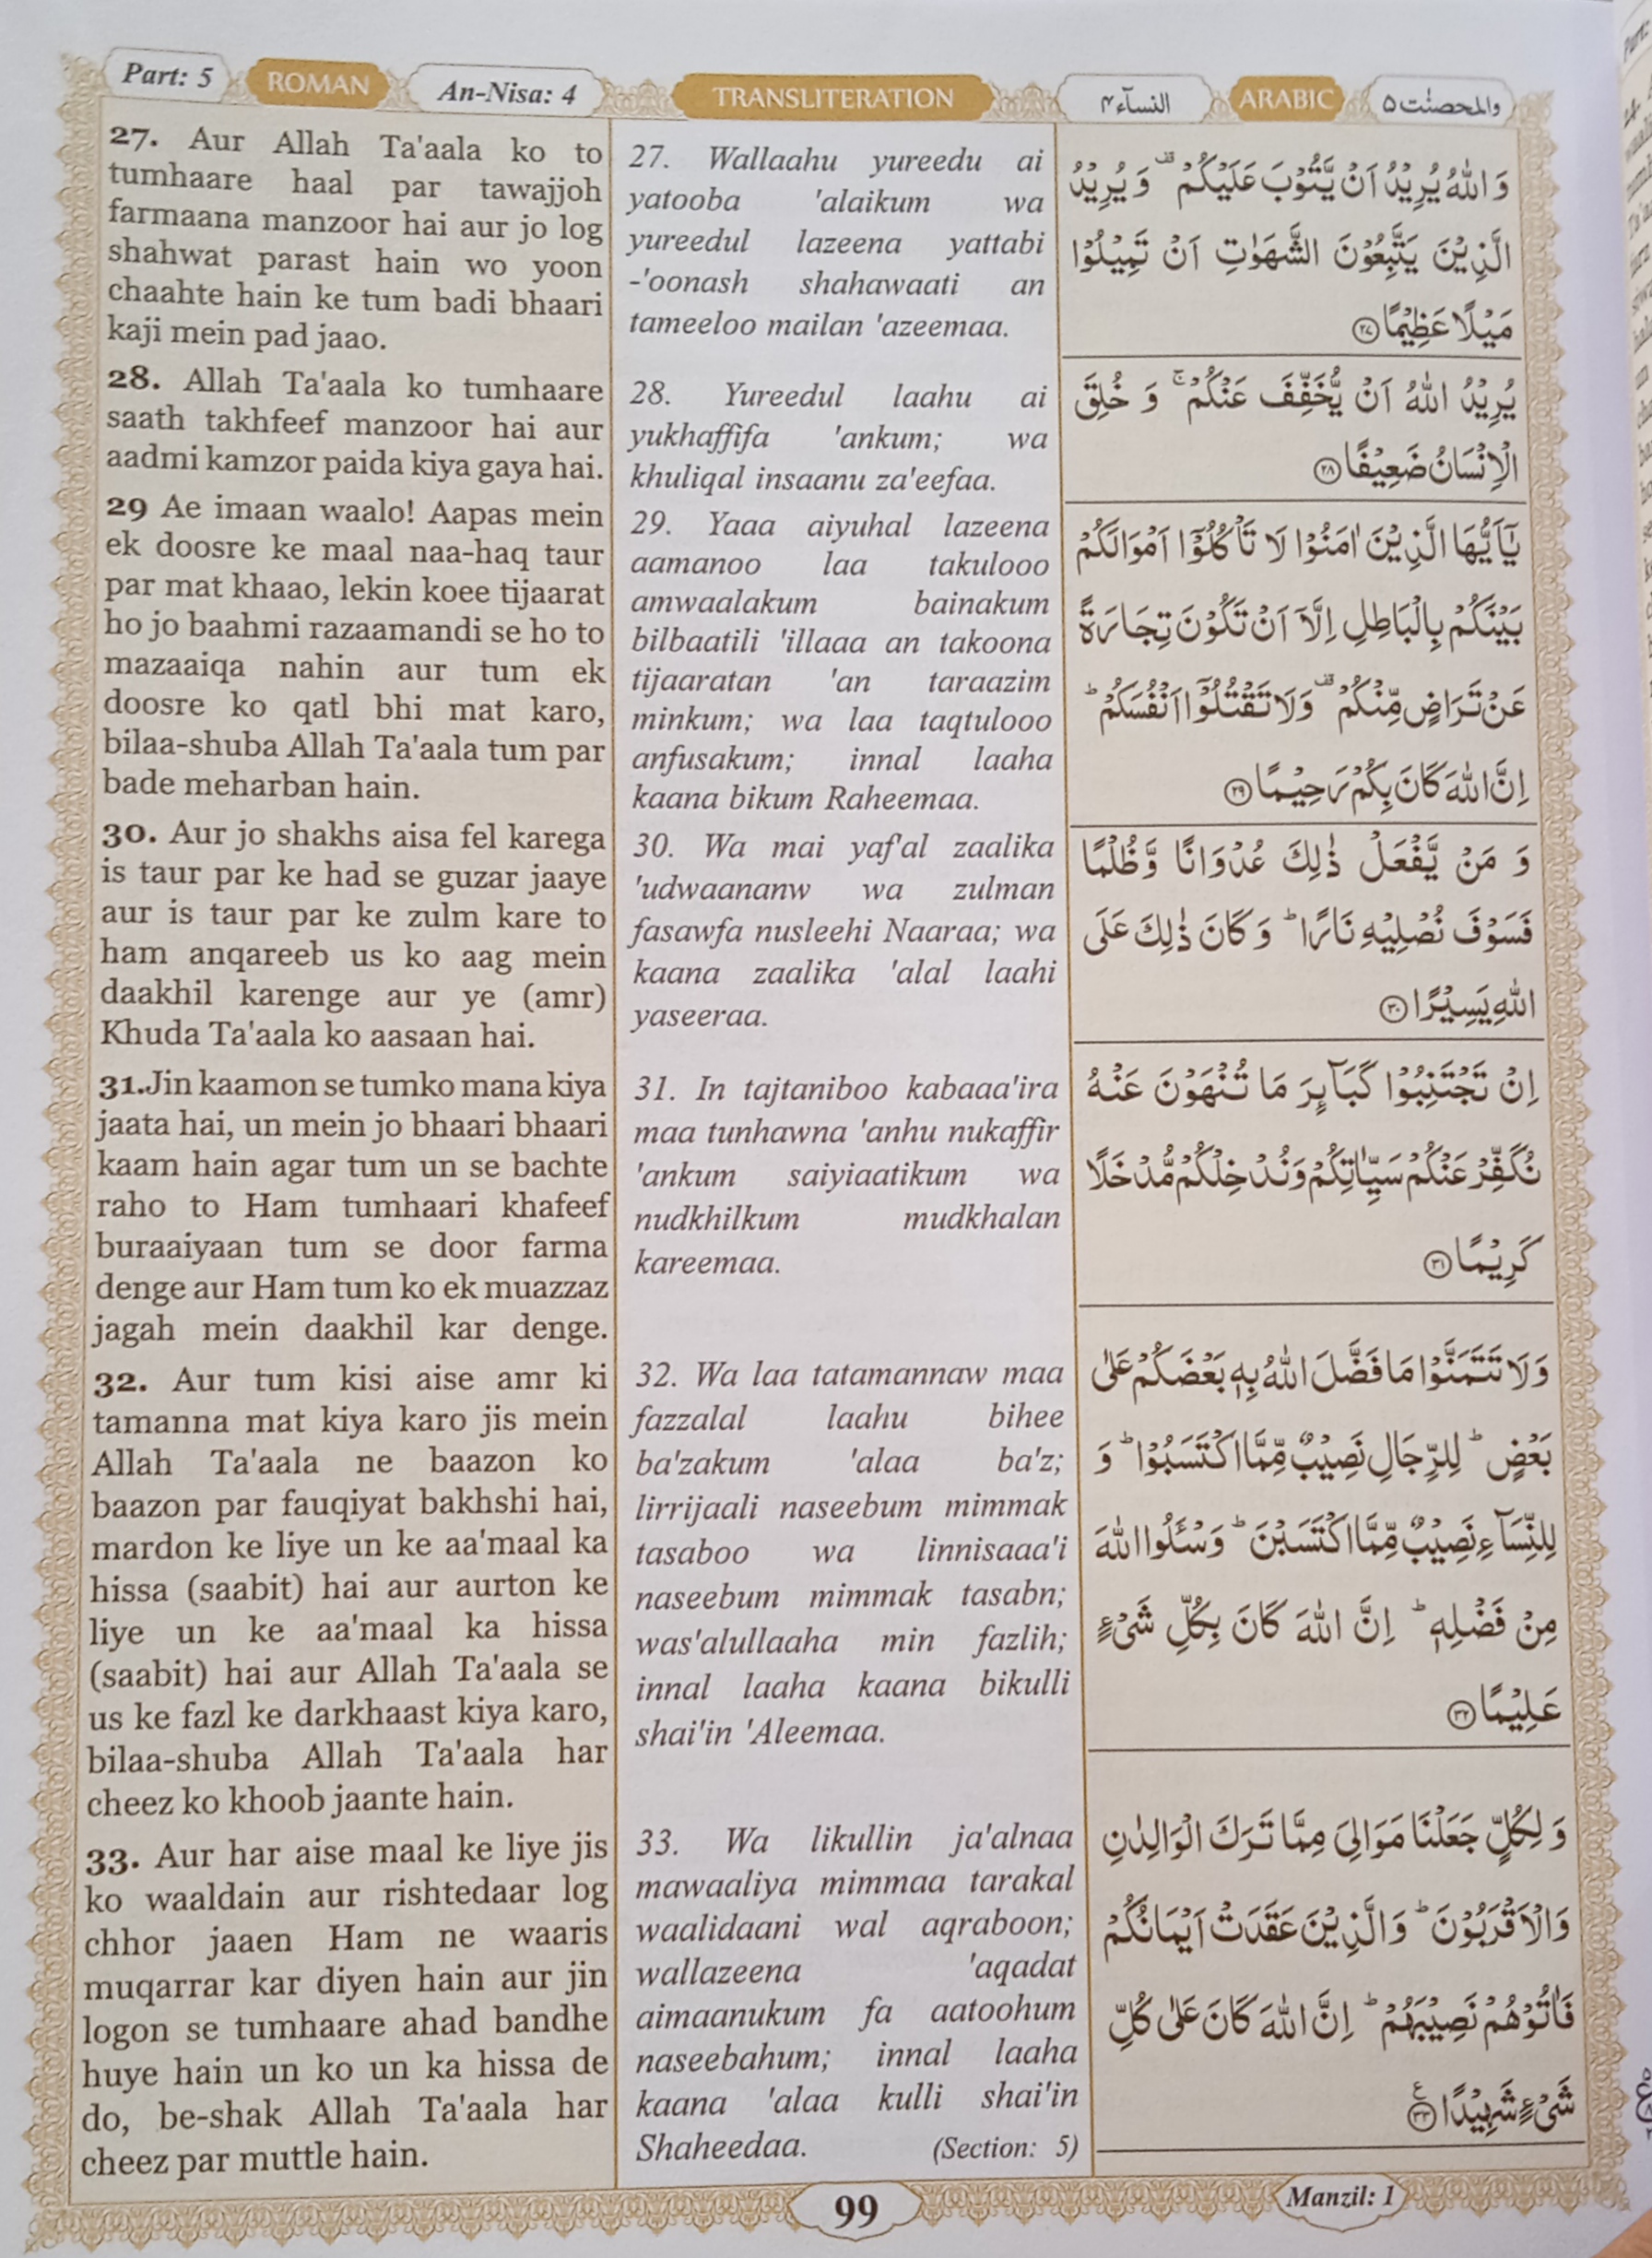 Part: 5 ROMAN An-Nisa: 4 TRANSLITERATION النسآء ٤ ARABIC والمحصنٰت ٥
27. Aur Allah Ta'aala ko to
tumhaare haal par tawajjoh
farmaana manzoor hai aur jo log
shahwat parast hain wo yoon
chaahte hain ke tum badi bhaari
kaji mein pad jaao.
28. Allah Ta'aala ko tumhaare
saath takhfeef manzoor hai aur
aadmi kamzor paida kiya gaya hai.
29 Ae imaan waalo! Aapas mein
ek doosre ke maal naa-haq taur
par mat khaao, lekin koee tijaarat
ho jo baahmi razaamandi se ho to
mazaaiqa nahin aur tum ek
doosre ko qatl bhi mat karo,
bilaa-shuba Allah Ta'aala tum par
bade meharban hain.
30. Aur jo shakhs aisa fel karega
is taur par ke had se guzar jaaye
aur is taur par ke zulm kare to
ham anqareeb us ko aag mein
daakhil karenge aur ye (amr)
Khuda Ta'aala ko aasaan hai.
31.Jin kaamon se tumko mana kiya
jaata hai, un mein jo bhaari bhaari
kaam hain agar tum un se bachte
raho to Ham tumhaari khafeef
buraaiyaan tum se door farma
denge aur Ham tum ko ek muazzaz
jagah mein daakhil kar denge.
32. Aur tum kisi aise amr ki
tamanna mat kiya karo jis mein
Allah Ta'aala ne baazon ko
baazon par fauqiyat bakhshi hai,
mardon ke liye un ke aa'maal ka
hissa (saabit) hai aur aurton ke
liye un ke aa'maal ka hissa
(saabit) hai aur Allah Ta'aala se
us ke fazl ke darkhaast kiya karo,
bilaa-shuba Allah Ta'aala har
cheez ko khoob jaante hain.
33. Aur har aise maal ke liye jis
ko waaldain aur rishtedaar log
chhor jaaen Ham ne waaris
muqarrar kar diyen hain aur jin
logon se tumhaare ahad bandhe
huye hain un ko un ka hissa de
do, be-shak Allah Ta'aala har
cheez par muttle hain.
27. Wallaahu yureedu ai
yatooba 'alaikum wa
yureedul lazeena yattabi
-'oonash shahawaati an
tameeloo mailan 'azeemaa.
28. Yureedul laahu ai
yukhaffifa 'ankum; wa
khuliqal insaanu za'eefaa.
29. Yaaa aiyuhal lazeena
aamanoo laa takulooo
amwaalakum bainakum
bilbaatili 'illaaa an takoona
tijaaratan 'an taraazim
minkum; wa laa taqtulooo
anfusakum; innal laaha
kaana bikum Raheemaa.
30. Wa mai yaf'al zaalika
'udwaananw wa zulman
fasawfa nusleehi Naaraa; wa
kaana zaalika 'alal laahi
yaseeraa.
31. In tajtaniboo kabaaa'ira
maa tunhawna 'anhu nukaffir
'ankum saiyiaatikum wa
nudkhilkum mudkhalan
kareemaa.
32. Wa laa tatamannaw maa
fazzalal laahu bihee
ba'zakum 'alaa ba'z;
lirrijaali naseebum mimmak
tasaboo wa linnisaaa'i
naseebum mimmak tasabn;
was'alullaaha min fazlih;
innal laaha kaana bikulli
shai'in 'Aleemaa.
33. Wa likullin ja'alnaa
mawaaliya mimmaa tarakal
waalidaani wal aqraboon;
wallazeena 'aqadat
aimaanukum fa aatoohum
naseebahum; innal laaha
kaana 'alaa kulli shai'in
Shaheedaa. (Section: 5)
وَاللّٰهُ يُرِيْدُ اَنْ يَّتُوْبَ عَلَيْكُمْ ۟ وَيُرِيْدُ
الَّذِيْنَ يَتَّبِعُوْنَ الشَّهَوٰتِ اَنْ تَمِيْلُوْا
مَيْلًا عَظِيْمًا ۝٢٧
يُرِيْدُ اللّٰهُ اَنْ يُّخَفِّفَ عَنْكُمْ ۚ وَ خُلِقَ
الْاِنْسَانُ ضَعِيْفًا ۝٢٨
يٰٓاَيُّهَا الَّذِيْنَ اٰمَنُوْا لَا تَاْكُلُوْٓا اَمْوَالَكُمْ
بَيْنَكُمْ بِالْبَاطِلِ اِلَّآ اَنْ تَكُوْنَ تِجَارَةً
عَنْ تَرَاضٍ مِّنْكُمْ ۟ وَلَا تَقْتُلُوْٓا اَنْفُسَكُمْ ؕ
اِنَّ اللّٰهَ كَانَ بِكُمْ رَحِيْمًا ۝٢٩
وَ مَنْ يَّفْعَلْ ذٰلِكَ عُدْوَانًا وَّظُلْمًا
فَسَوْفَ نُصْلِيْهِ نَارًا ؕ وَكَانَ ذٰلِكَ عَلَى
اللّٰهِ يَسِيْرًا ۝٣٠
اِنْ تَجْتَنِبُوْا كَبَآىِٕرَ مَا تُنْهَوْنَ عَنْهُ
نُكَفِّرْ عَنْكُمْ سَيِّاٰتِكُمْ وَنُدْخِلْكُمْ مُّدْخَلًا
كَرِيْمًا ۝٣١
وَلَا تَتَمَنَّوْا مَا فَضَّلَ اللّٰهُ بِهٖ بَعْضَكُمْ عَلٰى
بَعْضٍ ؕ لِلرِّجَالِ نَصِيْبٌ مِّمَّا اكْتَسَبُوْا ؕ وَ
لِلنِّسَآءِ نَصِيْبٌ مِّمَّا اكْتَسَبْنَ ؕ وَسْـَٔلُوا اللّٰهَ
مِنْ فَضْلِهٖ ؕ اِنَّ اللّٰهَ كَانَ بِكُلِّ شَیْءٍ
عَلِيْمًا ۝٣٢
وَ لِكُلٍّ جَعَلْنَا مَوَالِیَ مِمَّا تَرَكَ الْوَالِدٰنِ
وَالْاَقْرَبُوْنَ ؕ وَالَّذِيْنَ عَقَدَتْ اَيْمَانُكُمْ
فَاٰتُوْهُمْ نَصِيْبَهُمْ ؕ اِنَّ اللّٰهَ كَانَ عَلٰى كُلِّ
شَیْءٍ شَهِيْدًا ۝٣٣
99 Manzil: 1